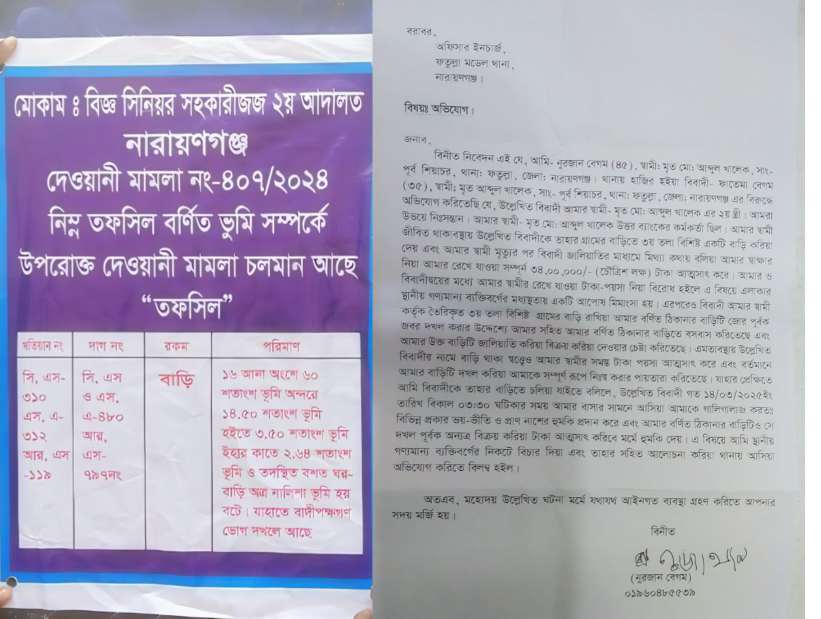 মোকাম ঃ বিজ্ঞ সিনিয়র সহকারীজজ ২য় আদালত
নারায়ণগঞ্জ
দেওয়ানী মামলা নং-৪০৭/২০২৪
নিম্ন তফসিল বর্ণিত ভূমি সম্পর্কে
উপরোক্ত দেওয়ানী মামলা চলমান আছে
“তফসিল”
খতিয়ান নং দাগ নং রকম পরিমাণ
সি, এস-
৩১০
এস, এ-
৩১২
আর, এস
-১১৯
সি, এস
ও এস,
এ-৪৮০
আর,
এস-
৭৯৭নং
বাড়ি
১৬ আনা অংশে ৬০
শতাংশ ভূমি অন্দরে
১৪.৫০ শতাংশ ভূমি
হইতে ৩.৫০ শতাংশ ভূমি
ইহার কাতে ২.৬৪ শতাংশ
ভূমি ও তদস্থিত বশত ঘর-
বাড়ি অত্র নালিশা ভূমি হয়
বটে। যাহাতে বাদীপক্ষগণ
ভোগ দখলে আছে
বরাবর,
অফিসার ইনচার্জ,
ফতুল্লা মডেল থানা,
নারায়ণগঞ্জ।
বিষয়ঃ অভিযোগ।
জনাব,
বিনীত নিবেদন এই যে, আমি- নুরজান বেগম (৪৫), স্বামী: মৃত মো: আব্দুল খালেক, সাং-
পূর্ব শিয়াচর, থানা: ফতুল্লা, জেলা: নারায়ণগঞ্জ। থানায় হাজির হইয়া বিবাদী- ফাতেমা বেগম
(৩৫), স্বামী: মৃত আব্দুল খালেক, সাং- পূর্ব শিয়াচর, থানা: ফতুল্লা, জেলা: নারায়ণগঞ্জ এর বিরুদ্ধে
অভিযোগ করিতেছি যে, উল্লেখিত বিবাদী আমার স্বামী- মৃত মো: আব্দুল খালেক এর ২য় স্ত্রী। আমরা
উভয়ে নিঃসন্তান। আমার স্বামী- মৃত মো: আব্দুল খালেক উত্তর ব্যাংকের কর্মকর্তা ছিল। আমার স্বামী
জীবিত থাকাবস্থায় উল্লেখিত বিবাদীকে তাহার গ্রামের বাড়িতে ৩য় তলা বিশিষ্ট একটি বাড়ি করিয়া
দেয় এবং আমার স্বামী মৃত্যুর পর বিবাদী জালিয়াতির মাধ্যমে মিথ্যা কথায় বলিয়া আমার স্বাক্ষর
নিয়া আমার রেখে যাওয়া সম্পূর্ন ৩৪,০০,০০০/- (চৌত্রিশ লক্ষ) টাকা আত্মসাৎ করে। আমার ও
বিবাদীদ্বয়ের মধ্যে আমার স্বামীর রেখে যাওয়া টাকা-পয়সা নিয়া বিরোধ হইলে এ বিষয়ে এলাকার
স্থানীয় গণ্যমান্য ব্যক্তিবর্গের মধ্যস্থতায় একটি আপোষ মিমাংসা হয়। এরপরেও বিবাদী আমার স্বামী
কর্তৃক তৈরিকৃত ৩য় তলা বিশিষ্ট গ্রামের বাড়ি রাখিয়া আমার বর্ণিত ঠিকানার বাড়িটি জোর পূর্বক
জবর দখল করার উদ্দেশ্যে আমার সহিত আমার বর্ণিত ঠিকানার বাড়িতে বসবাস করিতেছে এবং
আমার উক্ত বাড়িটি জালিয়াতি করিয়া বিক্রয় করিয়া দেওয়ার চেষ্টা করিতেছে। এমতাবস্থায় উল্লেখিত
বিবাদীর নামে বাড়ি থাকা স্বত্ত্বেও আমার স্বামীর সমস্ত টাকা পয়সা আত্মসাৎ করে এবং বর্তমানে
আমার বাড়িটি দখল করিয়া আমাকে সম্পূর্ণ রূপে নিঃস্ব করার পায়তারা করিতেছে। যাহার প্রেক্ষিতে
আমি বিবাদীকে তাহার বাড়িতে চলিয়া যাইতে বলিলে, উল্লেখিত বিবাদী গত ১৪/০৩/২০২৫ইং
তারিখ বিকাল ০৩:৩০ ঘটিকার সময় আমার বাসার সামনে আসিয়া আমাকে গালিগালাজ করতঃ
বিভিন্ন প্রকার ভয়-ভীতি ও প্রাণ নাশের হুমকি প্রদান করে এবং আমার বর্ণিত ঠিকানার বাড়িটিও সে
দখল পূর্বক অন্যত্র বিক্রয় করিয়া টাকা আত্মসাৎ করিবে মর্মে হুমকি দেয়। এ বিষয়ে আমি স্থানীয়
গণ্যমান্য ব্যক্তিবর্গের নিকটে বিচার দিয়া এবং তাহার সহিত আলোচনা করিয়া থানায় আসিয়া
অভিযোগ করিতে বিলম্ব হইল।
অতএব, মহোদয় উল্লেখিত ঘটনা মর্মে যথাযথ আইনগত ব্যবস্থা গ্রহণ করিতে আপনার
সদয় মর্জি হয়।
বিনীত
(নুরজান বেগম)
০১৯৬০৪৮৫৫৩৯